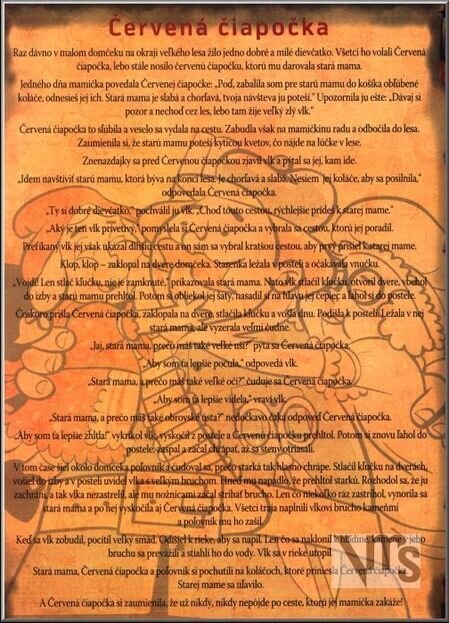 Červená čiapočka
Raz dávno v malom domčeku na okraji veľkého lesa žilo jedno dobré a milé dievčatko. Všetci ho volali Červená
čiapočka, lebo stále nosilo červenú čiapočku, ktorú mu darovala stará mama.
Jedného dňa mamička povedala Červenej čiapočke: „Poď, zabalila som pre starú mamu do košíka obľúbené
koláče, odnesieš jej ich. Stará mama je slabá a chorľavá, tvoja návšteva ju poteší.“ Upozornila ju ešte: „Dávaj si
pozor a nechoď cez les, lebo tam žije veľký zlý vlk.“
Červená čiapočka to sľúbila a veselo sa vydala na cestu. Zabudla však na mamičkinu radu a odbočila do lesa.
Zaumienila si, že starú mamu poteší kyticou kvetov, čo nájde na lúčke v lese.
Znenazdajky sa pred Červenou čiapočkou zjavil vlk a pýtal sa jej, kam ide.
„Idem navštíviť starú mamu, ktorá býva na konci lesa. Je chorľavá a slabá. Nesiem jej koláče, aby sa posilnila,“
odpovedala Červená čiapočka.
„Ty si dobré dievčatko,“ pochválil ju vlk. „Choď touto cestou, rýchlejšie prídeš k starej mame.“
„Aký je ten vlk prívetivý,“ pomyslela si Červená čiapočka a vybrala sa cestou, ktorú jej poradil.
Prefíkaný vlk jej však ukázal dlhšiu cestu a on sám sa vybral kratšou cestou, aby prvý prišiel k starej mame.
Klop, klop – zaklopal na dvere domčeka. Starenka ležala v posteli a očakávala vnučku.
„Vojdi! Len stlač kľučku, nie je zamknuté,“ prikazovala stará mama. Nato vlk stlačil kľučku, otvoril dvere, vbehol
do izby a starú mamu prehltol. Potom si obliekol jej šaty, nasadil si na hlavu jej čepiec a ľahol si do postele.
Čoskoro prišla Červená čiapočka, zaklopala na dvere, stlačila kľučku a vošla dnu. Podišla k posteli. Ležala v nej
stará mama, ale vyzerala veľmi čudne.
„Jaj, stará mama, prečo máš také veľké uši?“ pýta sa Červená čiapočka.
„Aby som ťa lepšie počula,“ odpovedá vlk.
„Stará mama, a prečo máš také veľké oči?“ čuduje sa Červená čiapočka.
„Aby som ťa lepšie videla,“ vraví vlk.
„Stará mama, a prečo máš také obrovské ústa?“ nedočkavo čaká odpoveď Červená čiapočka.
„Aby som ťa lepšie zhltla!“ vykríkol vlk, vyskočil z postele a Červenú čiapočku prehltol. Potom si znovu ľahol do
postele, zaspal a začal chrápať, až sa steny otriasali.
V tom čase šiel okolo domčeka poľovník a čudoval sa, prečo starká tak hlasno chrápe. Stlačil kľučku na dverách,
vošiel do izby a v posteli uvidel vlka s veľkým bruchom. Hneď mu napadlo, že prehltol starkú. Rozhodol sa, že ju
zachráni, a tak vlka nezastrelil, ale mu nožnicami začal strihať brucho. Len čo niekoľko ráz zastrihol, vynorila sa
stará mama a po nej vyskočila aj Červená čiapočka. Všetci traja naplnili vlkovi brucho kameňmi
a poľovník mu ho zašil.
Keď sa vlk zobudil, pocítil veľký smäd. Odišiel k rieke, aby sa napil. Len čo sa naklonil k hladine, kamene v jeho
bruchu sa prevážili a stiahli ho do vody. Vlk sa v rieke utopil.
Stará mama, Červená čiapočka a poľovník si pochutili na koláčoch, ktoré priniesla Červená čiapočka.
Starej mame sa uľavilo.
A Červená čiapočka si zaumienila, že už nikdy, nikdy nepôjde po ceste, ktorú jej mamička zakáže!